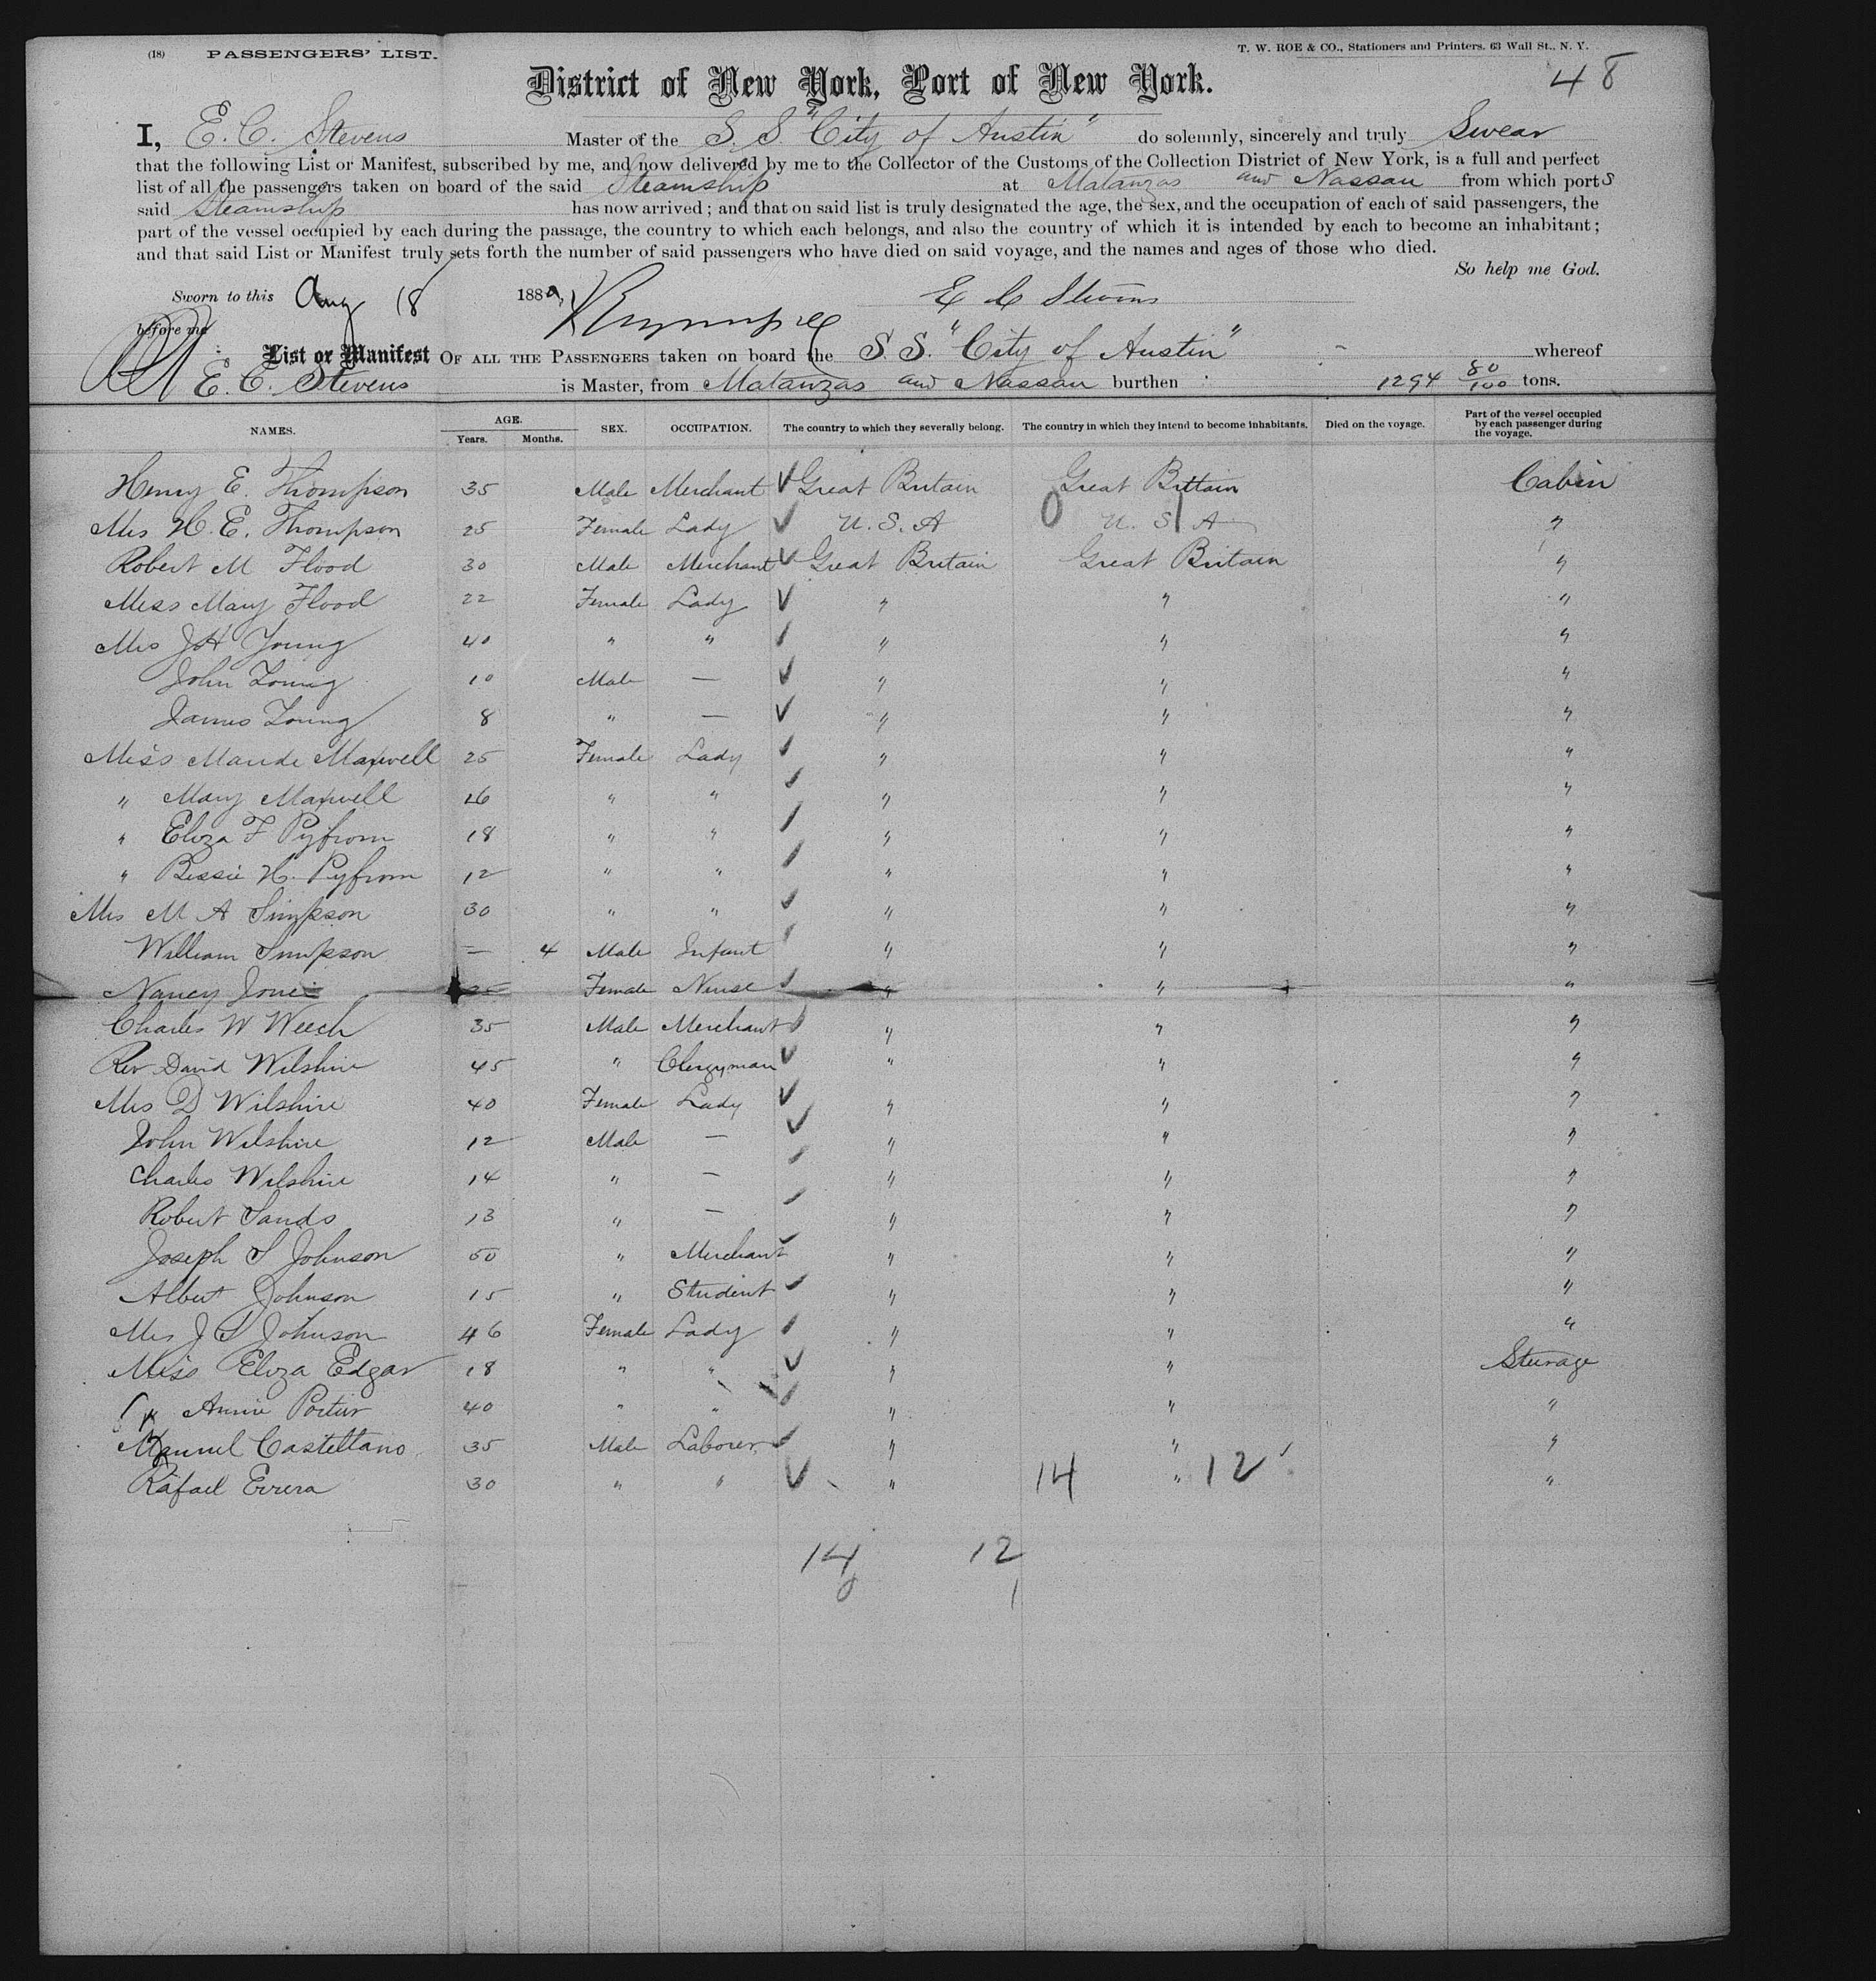 (18) PASSENGERS' LIST. T. W. ROE & CO., Stationers and Printers. 63 Wall St., N. Y.
48
District of New York, Port of New York.
I, E. C. Stevens Master of the S. S. "City of Austin" do solemnly, sincerely and truly Swear
that the following List or Manifest, subscribed by me, and now delivered by me to the Collector of the Customs of the Collection District of New York, is a full and perfect
list of all the passengers taken on board of the said Steamship at Matanzas and Nassau from which ports
said Steamship has now arrived; and that on said list is truly designated the age, the sex, and the occupation of each of said passengers, the
part of the vessel occupied by each during the passage, the country to which each belongs, and also the country of which it is intended by each to become an inhabitant;
and that said List or Manifest truly sets forth the number of said passengers who have died on said voyage, and the names and ages of those who died.
So help me God.
Sworn to this Aug 18 188 E C Stevens
before me
List or Manifest OF ALL THE PASSENGERS taken on board the S. S. "City of Austin" whereof
E. C. Stevens is Master, from Matanzas and Nassau burthen 1294 80/100 tons.
NAMES. AGE. Years. Months. SEX. OCCUPATION. The country to which they severally belong. The country in which they intend to become inhabitants. Died on the voyage. Part of the vessel occupied by each passenger during the voyage.
Henry E. Thompson 35 Male Merchant Great Britain Great Brittain Cabin
Mrs H. E. Thompson 25 Female Lady U. S. A 0 U. S. A 1 "
Robert M Flood 30 Male Merchant Great Britain Great Britain "
Miss Mary Flood 22 Female Lady " " "
Mrs J H Young 40 " " " " "
John Young 10 Male — " " "
James Young 8 " — " " "
Miss Maude Maxwell 25 Female Lady " " "
" Mary Maxwell 26 " " " " "
" Eliza F Pyfrom 18 " " " " "
" Bessie H. Pyfrom 12 " " " " "
Mrs M A Simpson 30 " " " " "
William Simpson — 4 Male Infant " " "
Nancy Jones 25 Female Nurse " " "
Charles W Weech 35 Male Merchant " " "
Rev David Wilshire 45 " Clergyman " " "
Mrs D Wilshire 40 Female Lady " " "
John Wilshire 12 Male — " " "
Charles Wilshire 14 " — " " "
Robert Sands 13 " — " " "
Joseph S Johnson 50 " Merchant " " "
Albert Johnson 15 " Student " " "
Mrs J S Johnson 46 Female Lady " " "
Miss Eliza Edgar 18 " " " " Steerage
" Annie Porter 40 " " " " "
Manuel Castellano 35 Male Laborer " " "
Rafael Errera 30 " " " 14 " 12 "
14 12
0 1